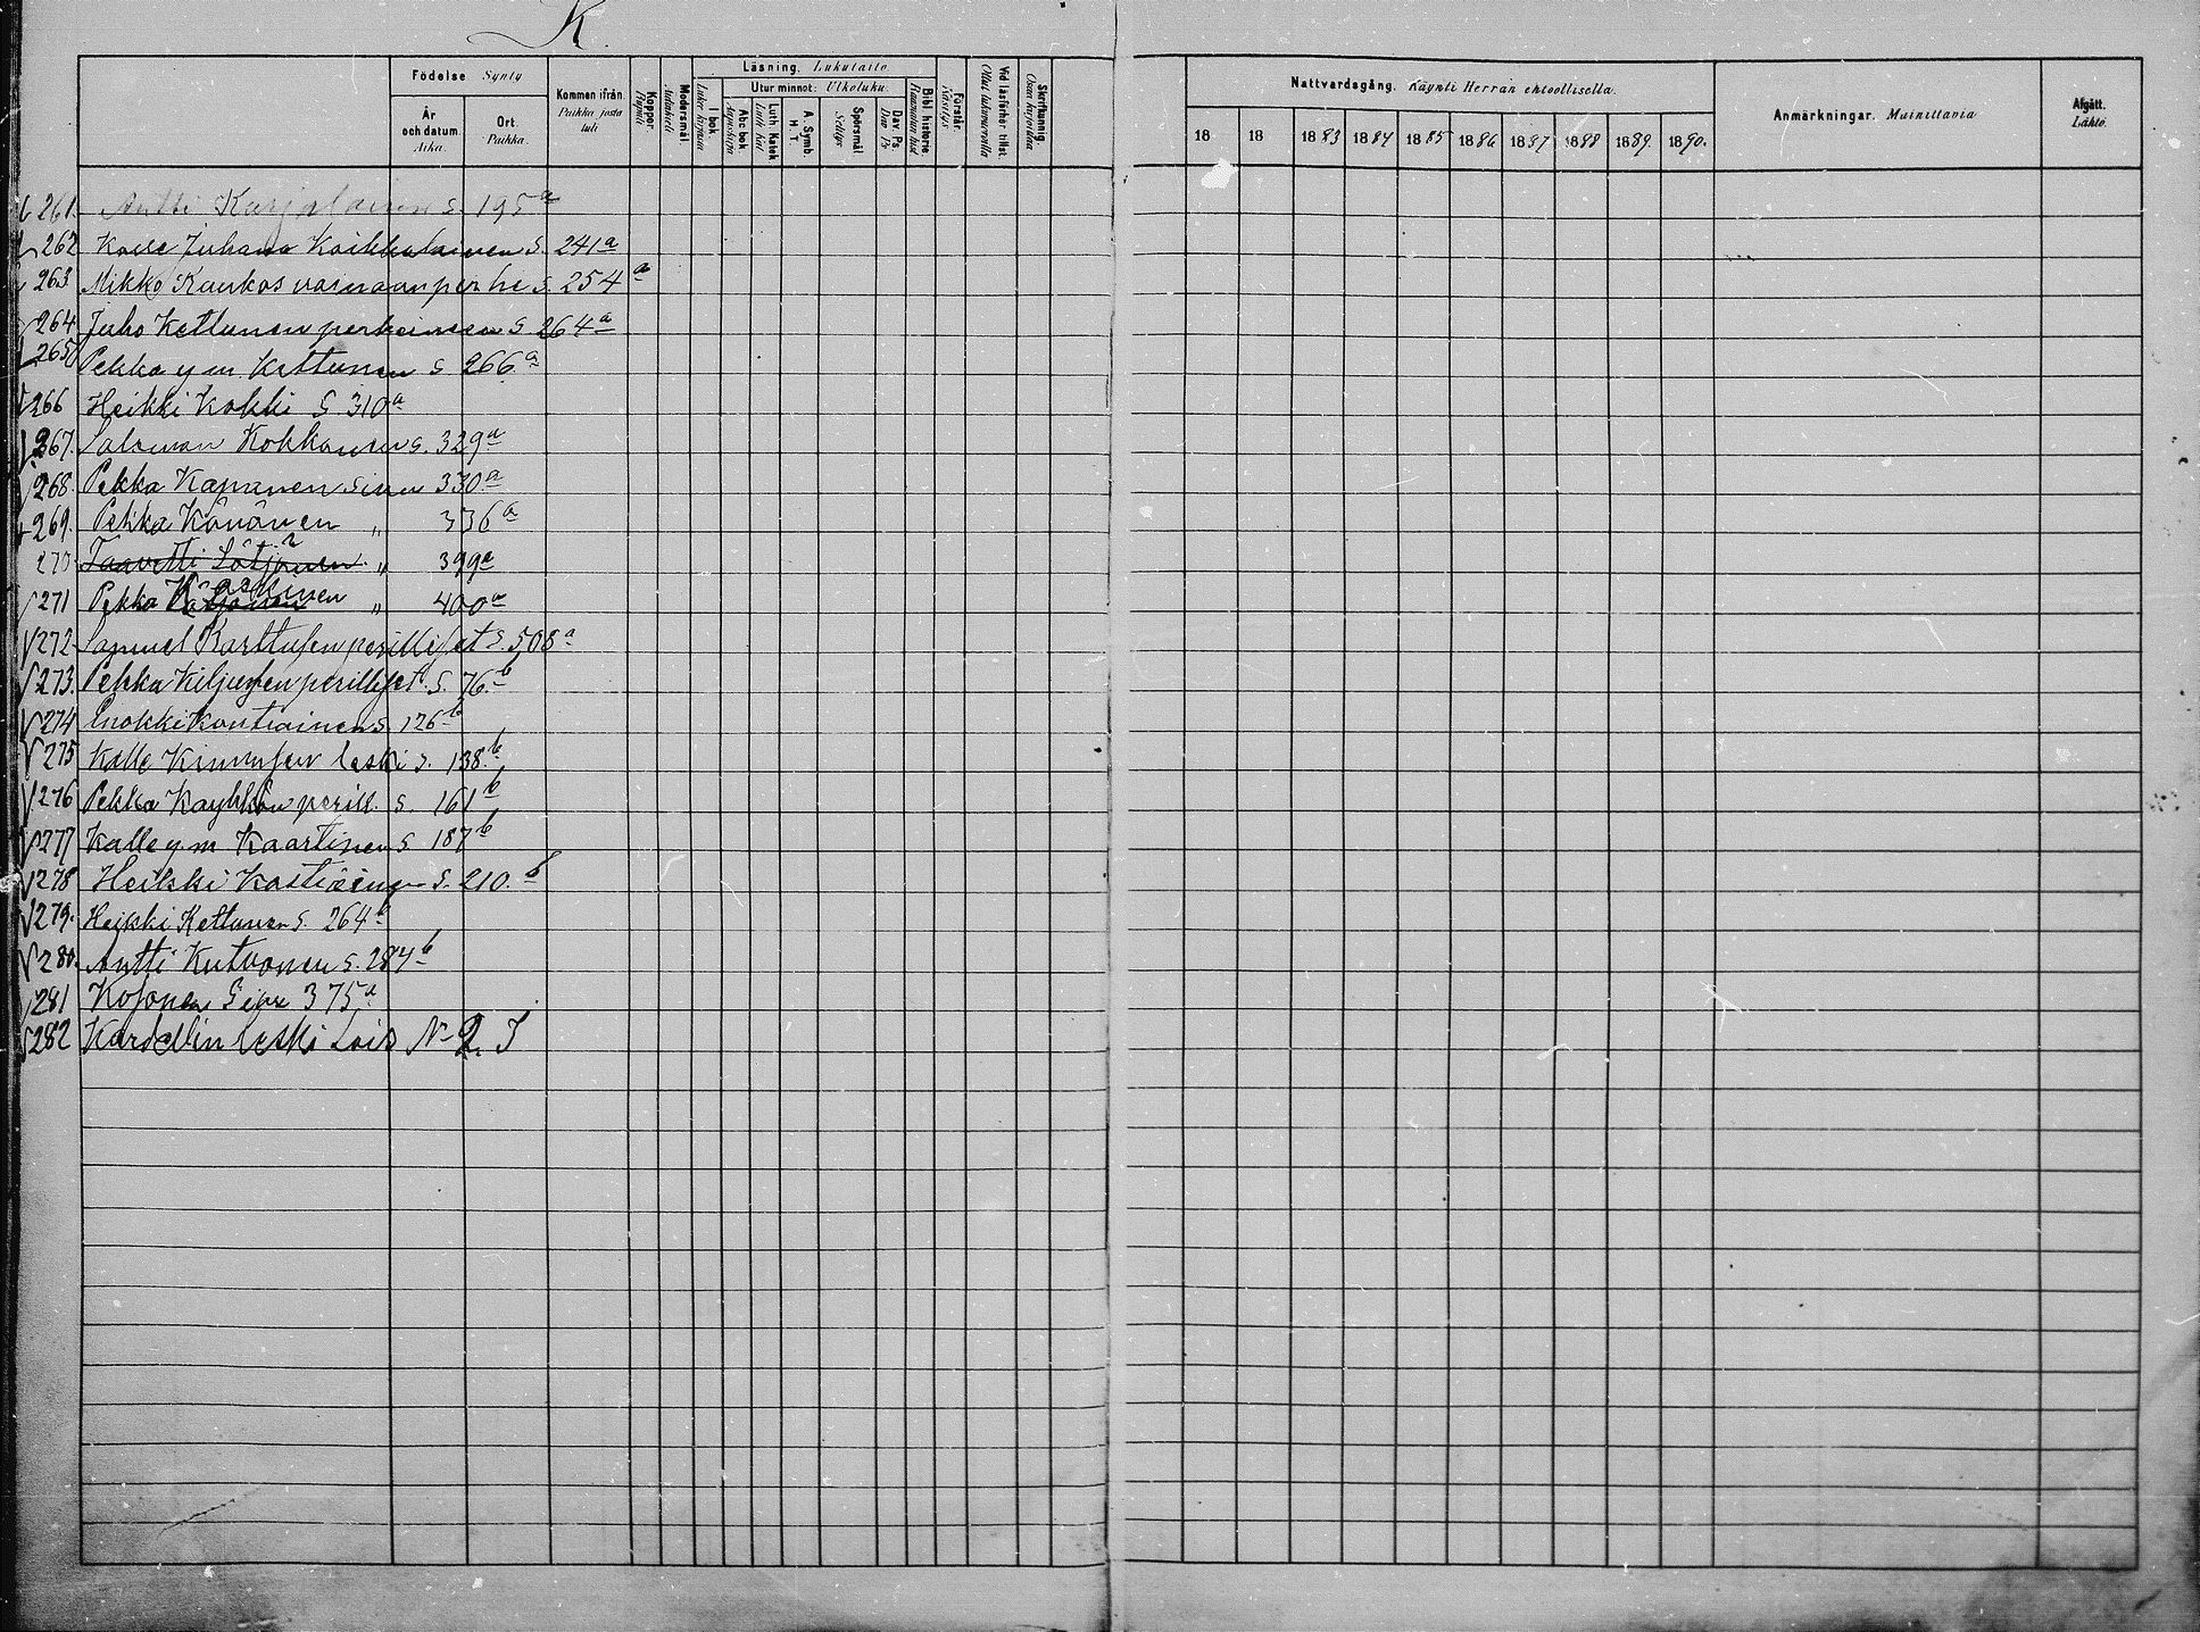 K.
Födelse Synty
År och datum. Aika.
Ort. Paikka.
Kommen ifrån. Paikka josta tuli
Koppor. Rupuli
Modersmål. Äidinkieli
Läsning. Lukutaito
I bok. Lukee kirjasta
Utur minnet: Ulkoluku.
Abc bok Aapiskirja
Luth Katek Luth Kat
A. Symb. H. T.
Spörsmål Selitys
Dav. Ps. Dav Ps
Bibl. historie. Raamatun hist
Förstår. Käsitys
Vid läsförhör tillst. Ollut lukuluvuilla
Skrifkunnig. Osaa kirjoittaa
Nattvardsgång. Käynti Herran ehtoollisella.
18 18 1883 1884 1885 1886 1887 1888 1889. 1890.
Anmärkningar. Mainittavia
Afgått. Lähtö.
261. Antti Karjalainen S. 195 a
262 Kalle Juhana Koikkalainen S. 241 a
263 Mikko Kaukos vainaan perhe S. 254 a
264 Juho Kettunen perheineen S 264 a
265 Pekka y.m. Kettunen S 266 a
266 Heikki Kokki S 310 a
267. Salomon Kokkonen S. 329 a
268. Pekka Kapanen sivu 330 a
269. Pekka Könönen „ 336 a
270. Taavetti Lötjönen „ 399 a
271 Pekka Lötjönen „ 400 a
272 Samuel Karttusen perilliset S. 508 a
273. Pekka Kiljusen perilliset. S. 76. b
274 Enokki Kontiainen S. 126 b
275 Kalle Kinnusen leski S. 138. b
276 Pekka Kayhkön perill. S. 161 b
277 Kalle y.m Kaartinen S. 187 b
278 Heikki Kostiainen S. 210. b
279. Heikki Kettunen S. 264 b
280. Antti Kutvonen S. 284 b
281 Kosonen Sivu 375 a
282 Kardellin leski Lois N 2. I